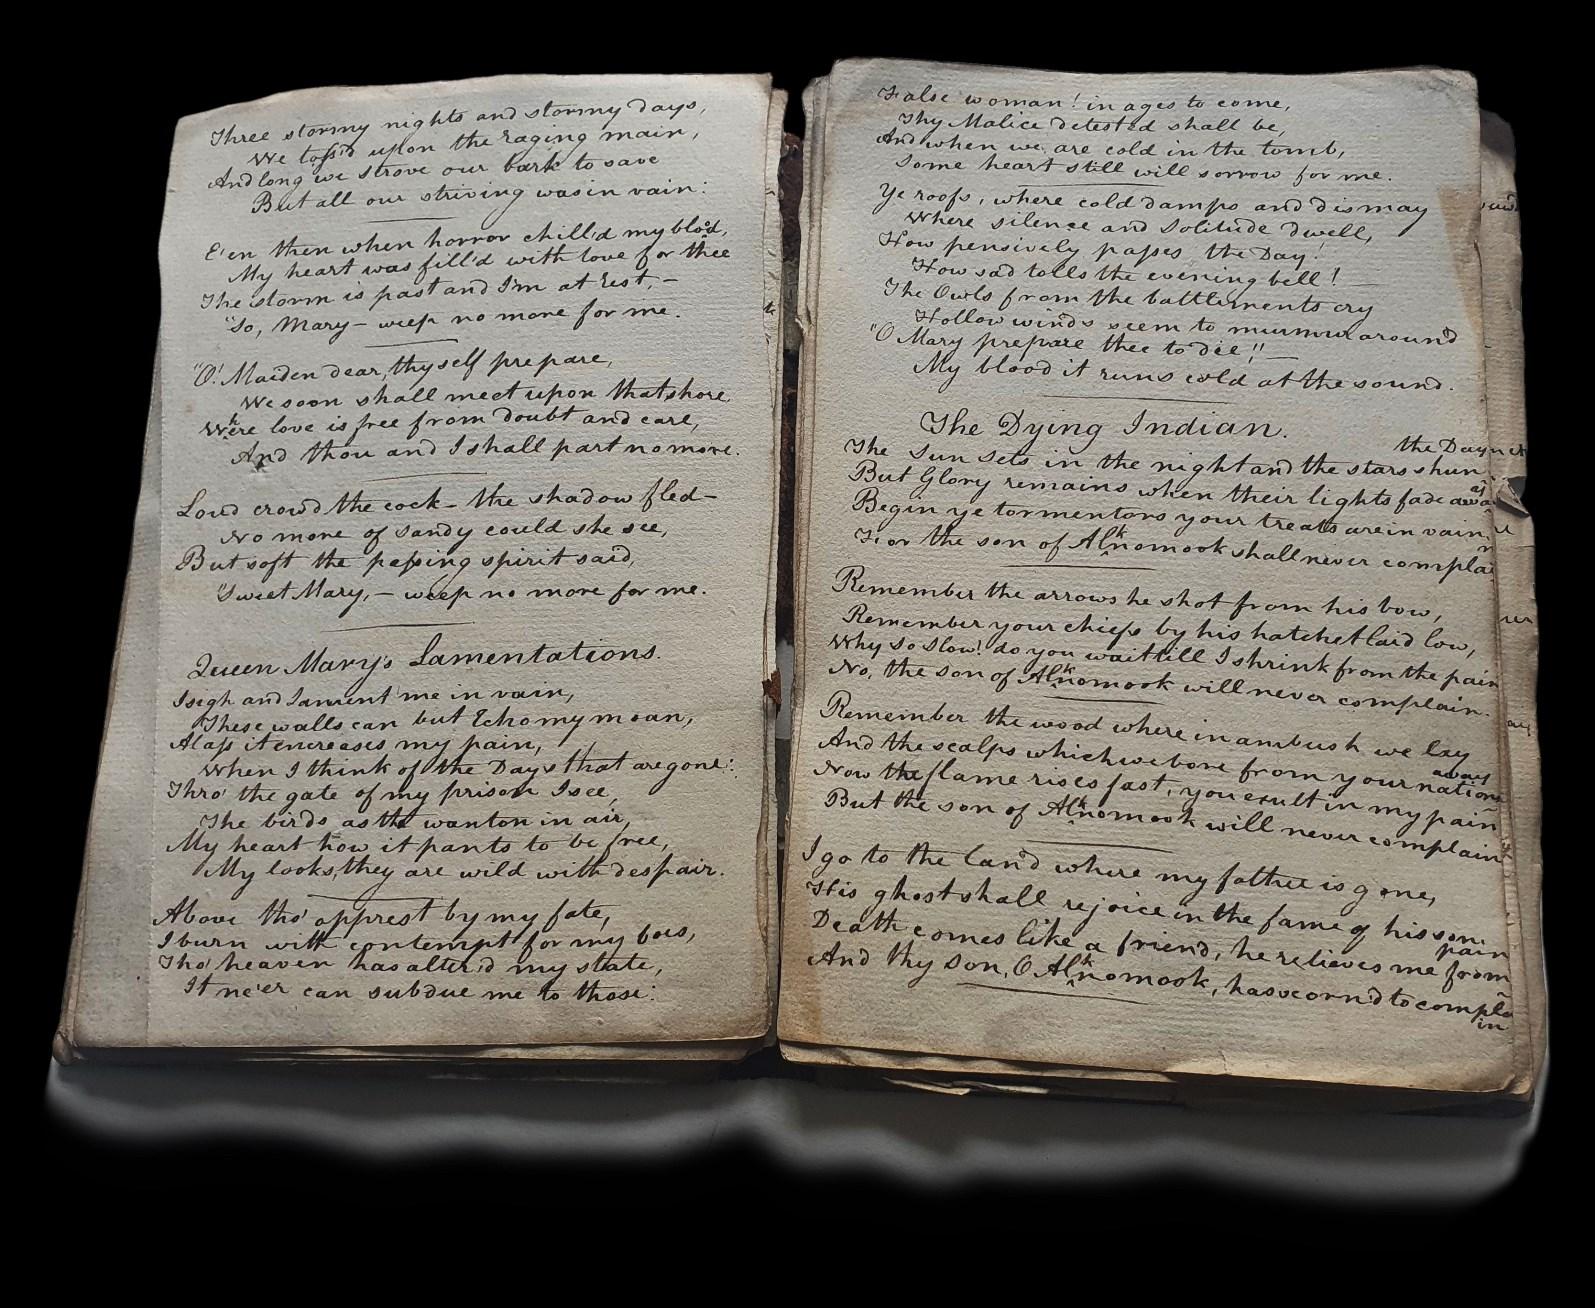 Three stormy nights and stormy days,
We toss'd upon the Raging main,
And long we strove our bark to save
But all our striving was in vain:
E'en then when horror chill'd my blood,
My heart was fill'd with love for thee
The storm is past and I'm at Rest, -
"So, Mary - weep no more for me.
"O! Maiden dear, thyself prepare,
We soon shall meet upon that shore
Where love is free from doubt and care,
And thou and I shall part no more.
Loud crow'd the cock - the shadow fled -
No more of Sandy could she see,
But soft the passing spirit said,
"Sweet Mary, - weep no more for me.
Queen Mary's Lamentations.
I sigh and lament me in vain,
These walls can but Echo my moan,
Alass it encreases my pain,
When I think of the Days that are gone:
Thro' the gate of my prison I see,
The birds as the wanton in air,
My heart how it pants to be free,
My looks, they are wild with despair.
Above tho' opprest by my fate,
I burn with contempt for my foes,
Tho' heaven has alter'd my state,
It ne'er can subdue me to those:
False woman! in ages to come,
Thy Malice detested shall be,
And when we are cold in the tomb,
Some heart still will sorrow for me.
Ye roofs, where cold damps and dismay
Where silence and Solitude dwell,
How pensively passes the Day!
How sad tolls the evening bell!
The Owls from the battlements cry
Hollow winds seem to murmur around
"O Mary prepare thee to die!" -
My blood it runs cold at the sound.
The Dying Indian.
The Sun sets in the night and the stars shun the Day
But Glory remains when their lights fade away
Begin ye tormentors your treats are in vain,
For the son of Alknomook shall never complain
Remember the arrows he shot from his bow,
Remember your chiefs by his hatchet laid low,
Why so slow! do you wait till I shrink from the pain
No, the son of Alknomook will never complain.
Remember the wood where in ambush we lay
And the scalps which we bore from your nation away
Now the flame rises fast, you exult in my pain
But the son of Alknomook will never complain
I go to the land where my father is gone,
His ghost shall rejoice in the fame of his son.
Death comes like a friend, he relieves me from pain
And thy son, O Alknomook, has scorn'd to complain